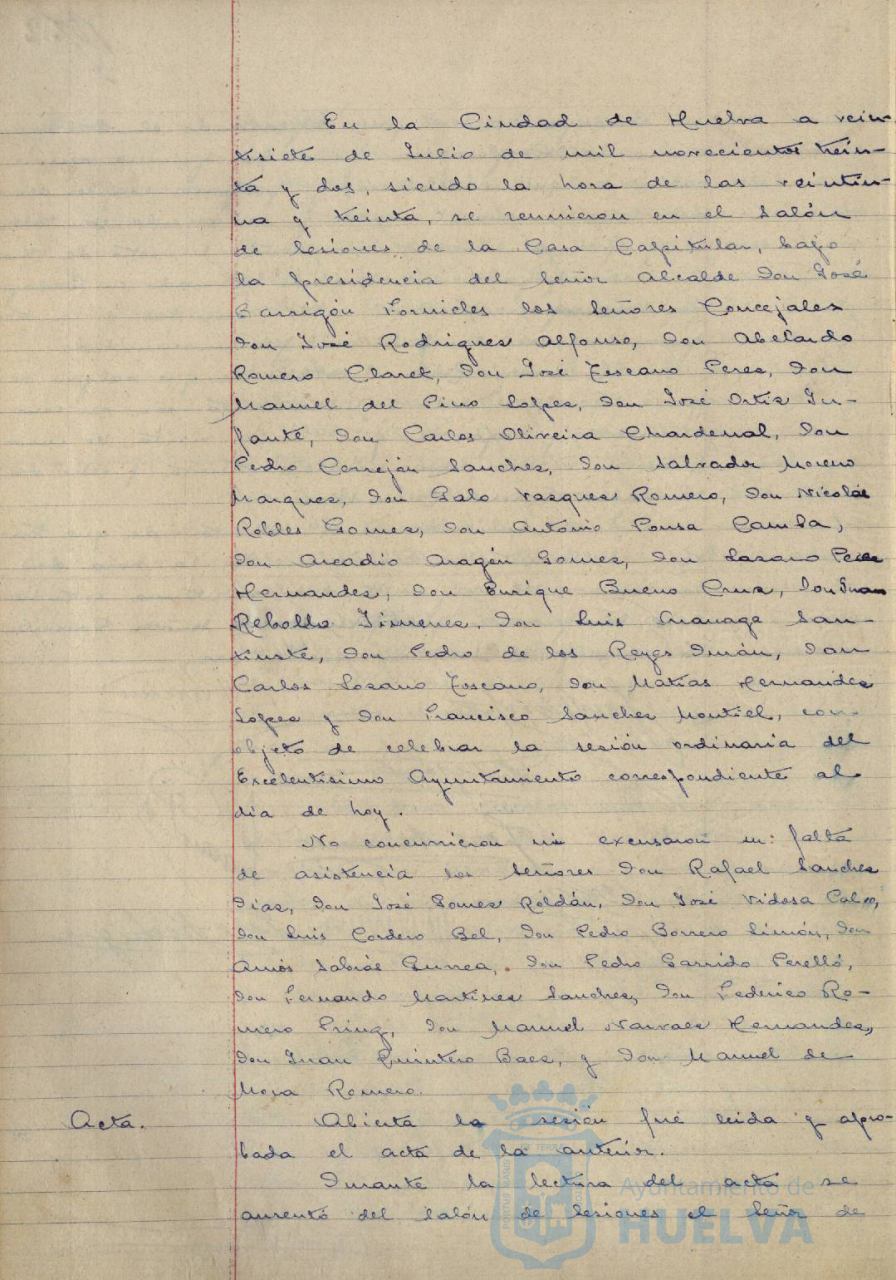 En la Ciudad de Huelva a vein-
tisiete de Julio de mil novecientos trein-
ta y dos, siendo la hora de las veintiu-
na y treinta, se reunieron en el Salón
de Sesiones de la Casa Capitular, bajo
la presidencia del Señor Alcalde Don José
Barrigón Fornieles los Señores Concejales
Don José Rodrigues Alfonso, Don Abelardo
Romero Claret, Don José Toscano Peres, Don
Manuel del Pino Lopes, Don José Ortis In-
fante, Don Carlos Oliveira Chardenal, Don
Pedro Cerrejón Sanches, Don Salvador Moreno
Marques, Don Galo Vasques Romero, Don Nicolás
Robles Gomes, Don Antonio Ponsa Camba,
Don Arcadio Aragón Gomes, Don Lazaro Peres
Hernandes, Don Enrique Bueno Crus, Don Juan
Rebollo Jimenes, Don Luis San-
tiuste, Don Pedro de los Reyes Imán, Don
Carlos Lozano Toscano, Don Matías Hernandes
Lopes y Don Francisco Sanches Montiel, con
objeto de celebrar la sesión ordinaria del
Excelentisimo Ayuntamiento correspondiente al
dia de hoy.
No concurrieron ni excusaron su falta
de asistencia los Señores Don Rafael Sanches
Dias, Don José Gomes Roldán, Don José Vidosa Calvo,
Don Luis Cordero Bel, Don Pedro Borrero Limón, Don
Amós Sabrás Gurrea, Don Pedro Garrido Perelló,
Don Fernando Martines Sanches, Don Federico Ro-
mero Don Manuel Narvaes Hernandes,
Don Juan Quintero Baes, y Don Manuel de
Mora Romero.
Acta.
Abierta la sesión fué leida y apro-
bada el acta de la anterior.
Durante la lectura del acta se
ausentó del Salón de Sesiones el Señor de
Ayuntamiento de
HUELVA